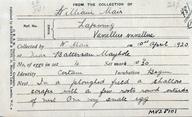 FROM THE COLLECTION OF
William Mair
Ref. No. Lapwing
Vanellus vanellus
Collected by W. Mair on 10th April 1920
near Batterson Maybole
No. of eggs in set 4 Set mark
Identity Certain Incubation Begun
In a ploughed field a shallow
scrape with a few roots round outside
of nest One very small egg